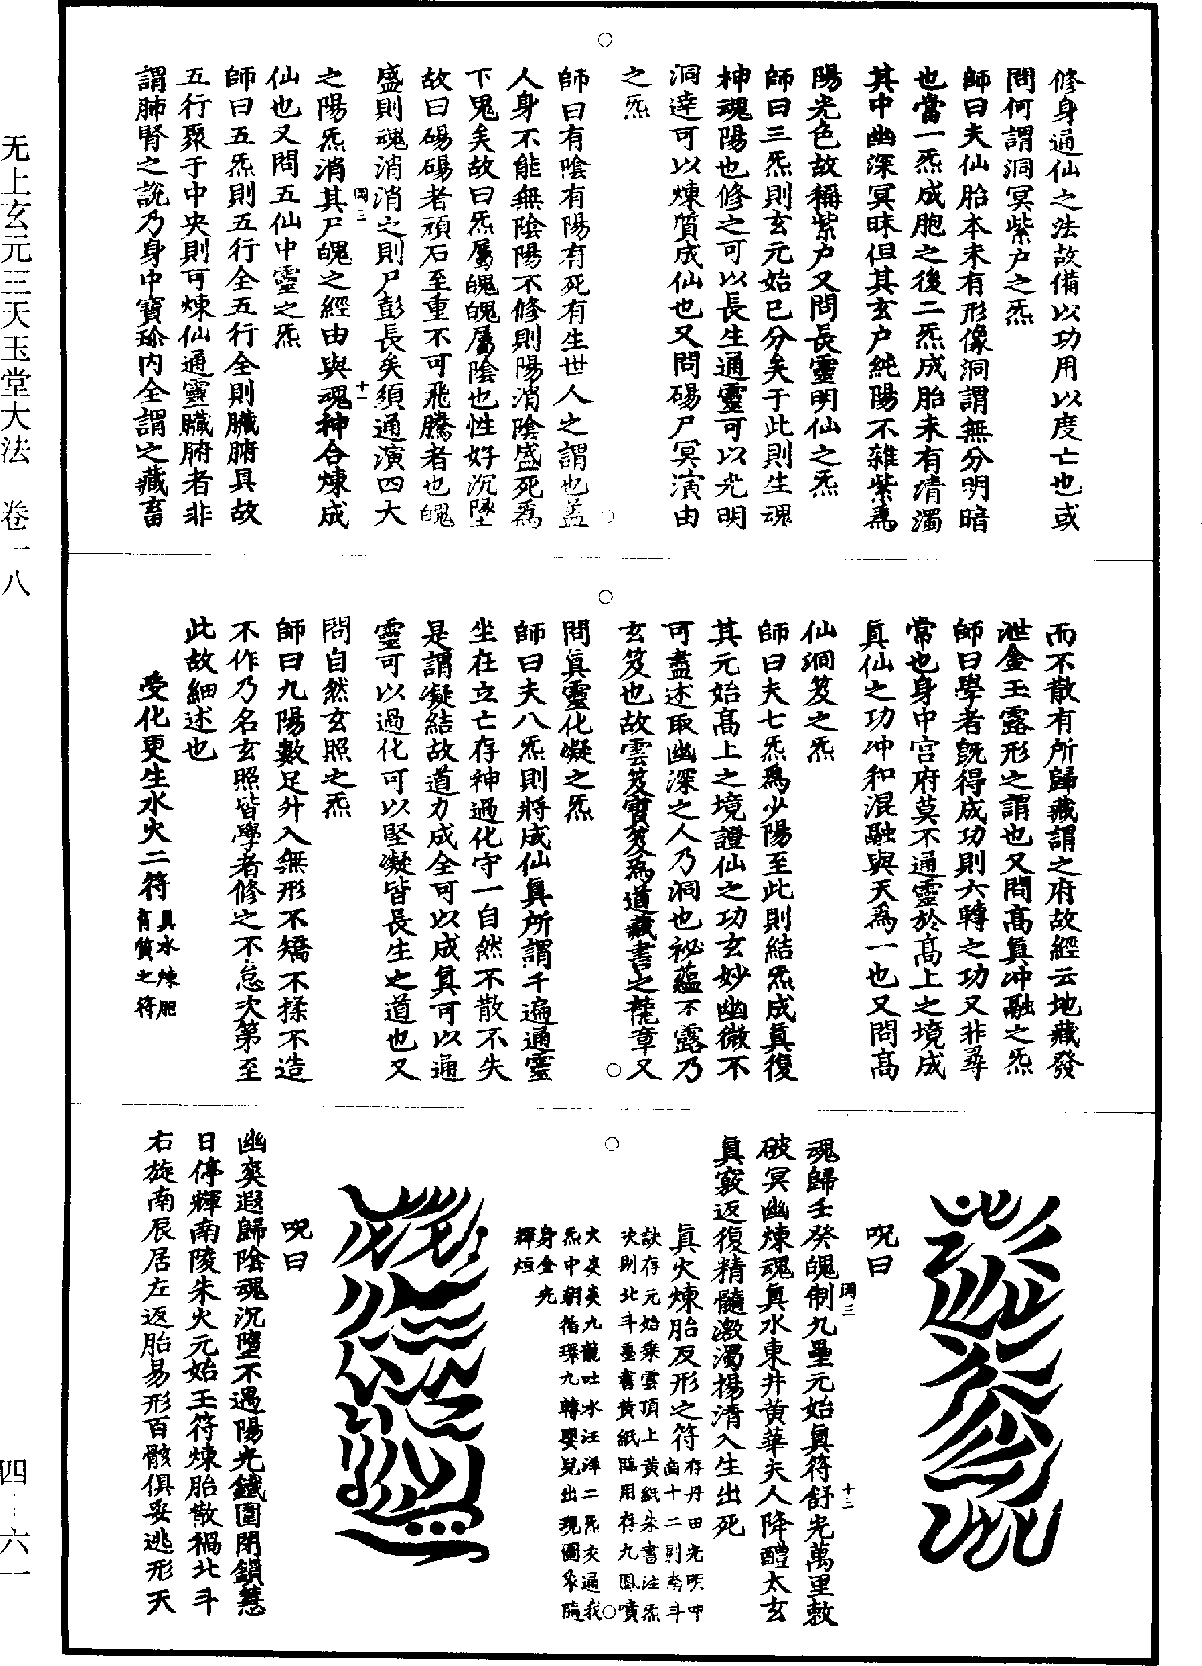 无上玄元三天玉堂大法　卷一八
四—六一
修身通仙之法故備以功用以度亡也或
問何謂洞冥紫户之炁
師曰夫仙胎本未有形像洞謂無分明暗
也當一炁成胞之後二炁成胎未有清濁
其中幽深冥昧但其玄户純陽不雜紫爲
陽光色故稱紫户又問長靈明仙之炁
師曰三炁則玄元始已分矣于此則生魂
神魂陽也修之可以長生通靈可以光明
洞達可以煉質成仙也又問碭尸冥演由
之炁
師曰有陰有陽有死有生世人之謂也蓋
人身不能無陰陽不修則陽消陰盛死爲
下鬼矣故曰炁屬魄魄屬陰也性好沉墜
故曰碭碭者頑石至重不可飛騰者也魄
盛則魂消消之則尸彭長矣須通演四大
之陽炁消其尸魄之經由與魂神合煉成
仙也又問五仙中靈之炁
師曰五炁則五行全五行全則臟腑具故
五行聚于中央則可煉仙通靈臟腑者非
謂肺腎之說乃身中寶珍内全謂之藏畜
而不散有所歸藏謂之府故經云地藏發
泄金玉露形之謂也又問高眞沖融之炁
師曰學者旣得成功則六轉之功又非尋
常也身中宫府莫不通靈於高上之境成
眞仙之功沖和混融與天爲一也又問高
仙洞笈之炁
師曰夫七炁爲少陽至此則結炁成眞復
其元始高上之境證仙之功玄妙幽微不
可盡述取幽深之人乃洞也祕蘊不露乃
玄笈也故雲笈寶笈爲道藏書之龍章又
問眞靈化凝之炁
師曰夫八炁則將成仙眞所謂千遍通靈
坐在立亡存神過化守一自然不散不失
是謂凝結故道力成全可以成眞可以通
靈可以過化可以堅凝皆長生之道也又
問自然玄照之炁
師曰九陽數足升入無形不矯不揉不造
不作乃名玄照皆學者修之不怠次第至
此故細述也
受化更生水火二符眞水煉胎有質之符
呪曰
魂歸壬癸魄制九壘元始眞符舒光萬里敕
破冥幽煉魂眞水東井黄華夫人降醴太玄
眞竅返復精髓激濁揚清入生出死
眞火煉胎反形之符
存丹田光明中
訣存元始乘雲頂上黄紙朱書注炁
次則北斗墨書黄紙臨用存九鳳噴
火炎炎九龍吐水汪洋二炁交通我
炁中朝循環九轉嬰兒出現圓象隨
身金光
輝烜
呪曰
幽爽遐歸陰魂沉墮不遇陽光鐵圍閉鎖慧
日停輝南陵朱火元始玉符煉胎散禍北斗
右旋南辰居左返胎易形百骸俱妥逃形天